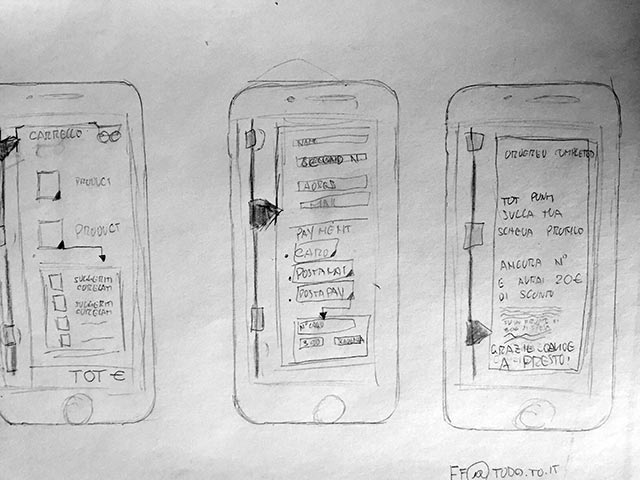 CARRELLO
PRODUCT
PRODUCT
SUGGERITI
CORRELATI
SUGGERITI
CORRELATI
TOT €
NAME
SECOND N
MAIL
PAYMENT
CARD
POSTAPAY
N° CARD
SCADENZA
TOT PUNTI
SULLA TUA
SCHEDA PROFILO
ANCORA N°
E AVRAI 20€
DI SCONTO
GRAZIE
A PRESTO!
FF@TODO.TO.IT